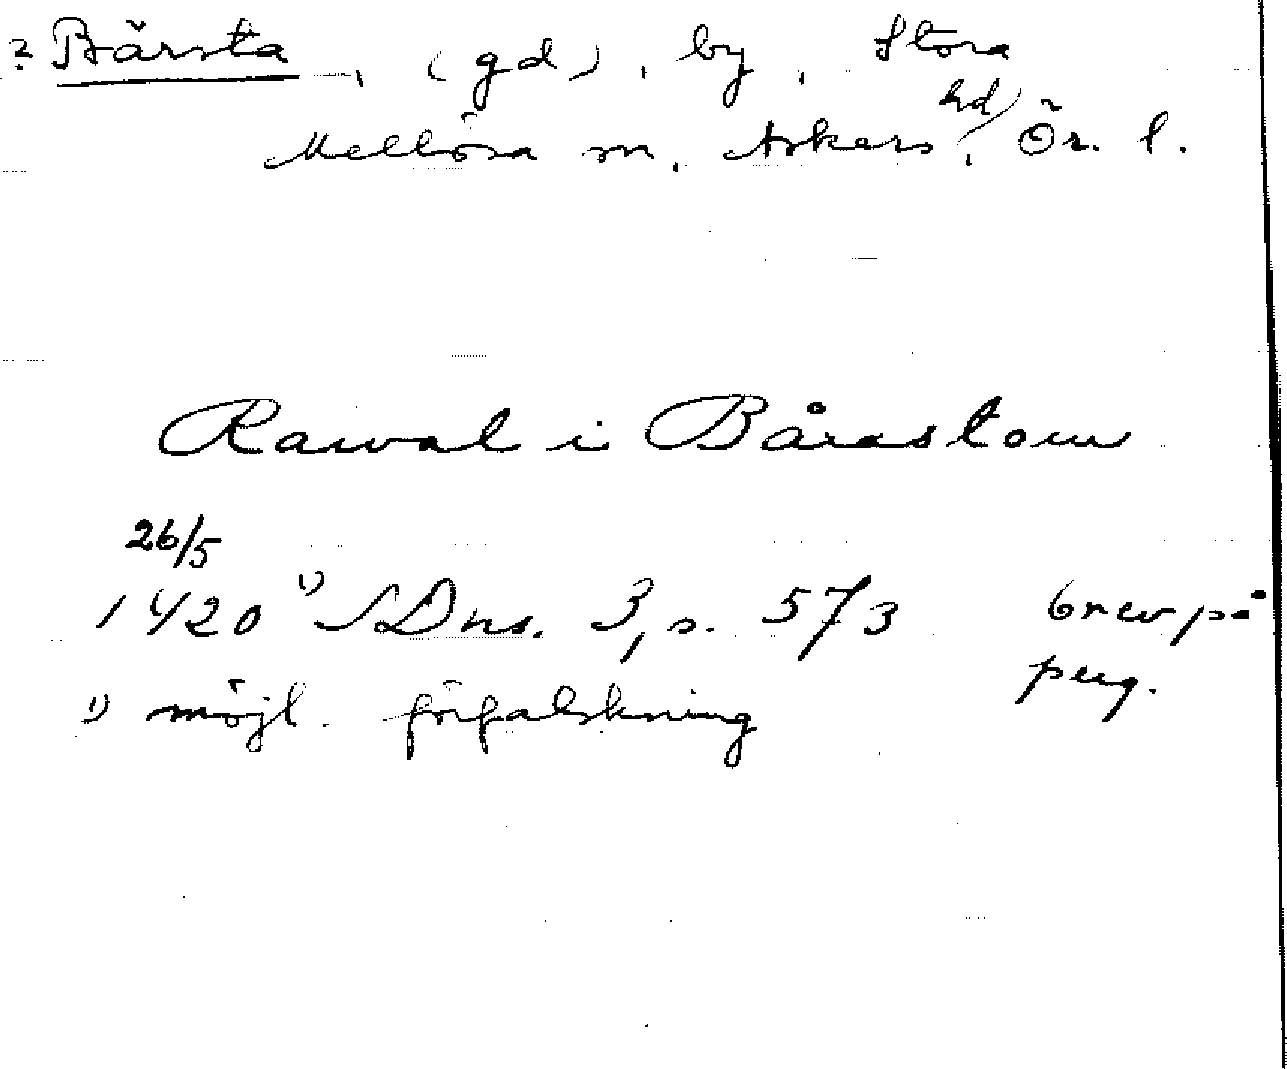 ? Bärsta, (gd), by, Stora
Mellösa sn, Askers hd, Ör. l.
Rawal i Bårastom
26/5
1420 1) SDns. 3, s. 573 brev på
perg.
1) möjl. förfalskning